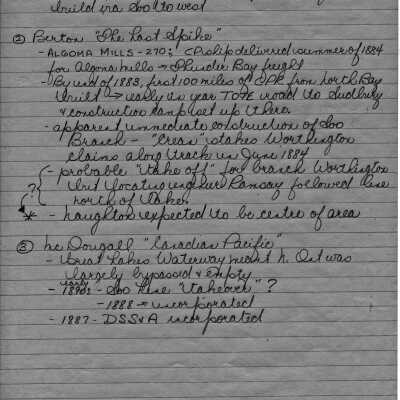 build via Soo to west
② Berton "The Last Spike"
- ALGOMA MILLS - 270; CP ship delivered summer of 1884
for Algoma Mills → Thunder Bay freight
- By end of 1883, first 100 miles of CPR from North Bay
built → early in year TOTE road to Sudbury
& construction camp set up there.
- apparent immediate construction of Soo
Branch - stakes Worthington
claims along track in June 1884
? - probable "take off" for branch Worthington
but locating engineer Ramsay followed line
north of lake.
* - Naughton expected to be centre of area
③ McDougall "Canadian Pacific"
- Great Lakes Waterway meant N. Ont was
largely bypassed & empty
- early 1890s - Soo Line "takeover" ?
- 1888 → incorporated
- 1887 - DSS&A incorporated